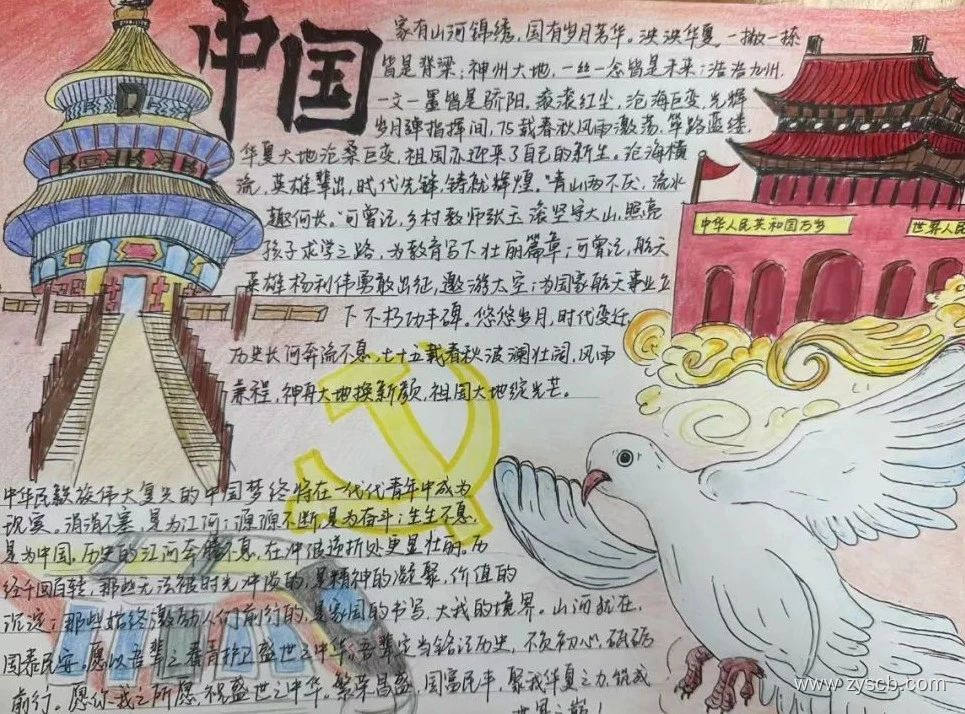 中国
家有山河锦绣，国有岁月芳华。泱泱华夏，一撇一捺
皆是脊梁；神州大地，一丝一念皆是未来；浩浩九州，
一文一墨皆是骄阳，滚滚红尘，沧海巨变，光辉
岁月弹指挥间，75载春秋风雨激荡，筚路蓝缕，
华夏大地沧桑巨变，祖国亦迎来了自己的新生。沧海横
流，英雄辈出，时代先锋，铸就辉煌。"青山两不厌，流水
趣何长。"可曾记，乡村教师张玉滚坚守大山，照亮
孩子求学之路，为教育写下壮丽篇章；可曾记，航天
英雄杨利伟勇敢出征，遨游太空；为国家航天事业立
下不朽功丰碑。悠悠岁月，时代变迁，
历史长河奔流不息，七十五载春秋波澜壮阔，风雨
兼程，神舟大地换新颜，祖国大地绽光芒。
中华人民共和国万岁
世界人民
中华民族伟大复兴的中国梦终将在一代代青年中成为
现实。涓涓不塞，是为江河；源源不断，是为奋斗；生生不息，
是为中国。历史的江河奔腾不息，在冲佷迭折处更显壮丽。历
经千回百转，那些无法被时光冲淡的，是精神的凝聚，价值的
沉淀；那些始终激励人们前行的，是家国的书写，大我的境界。山河犹在，
国泰民安。愿以吾辈之青春护卫盛世之中华。吾辈定当铭记历史，不负初心，砥砺
前行。愿你我之所愿，祝盛世之中华。繁荣昌盛，国富民丰，聚我华夏之力，筑成
世界之巅！
www.zyscb.com